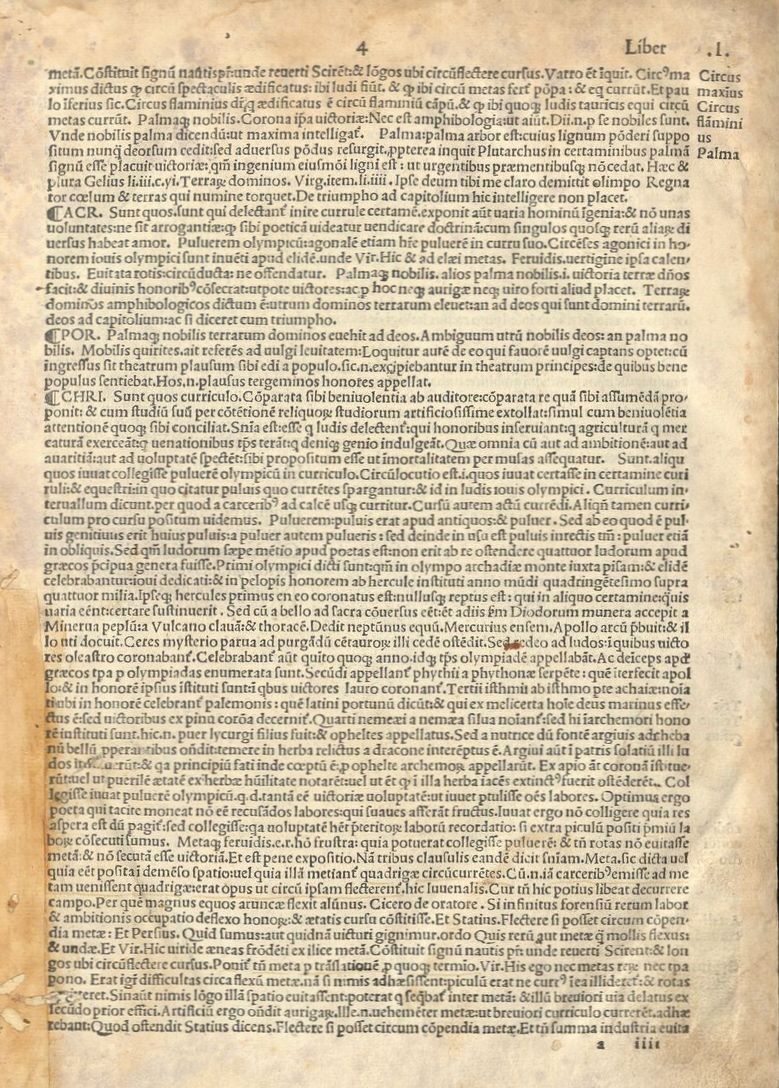 4 Liber .I.
metā. Cōſtituit ſignū nautis pr̄: unde reuerti Scirēt: & lōgos ubi circūflectere curſus. Varro ēt īquit. Circꝰ ma
ximus dictus ꝙ circū ſpectaculis ædificatus: ibi ludi fiūt. & ꝙ ibi circū metas ferť pōpa: & eq currūt. Et pau
lo īferius ſic. Circus flaminius ædificatus ē circū flaminiū cāpū. & ꝙ ibi quoqꝫ ludis tauricis equi circū
metas currūt. Palmaqꝫ nobilis. Corona ip̄a uictoriæ: Nec eſt amphibologia: ut aiūt. Dii.n.p ſe nobiles ſunt.
Vnde nobilis palma dicendū: ut maxima intelligať. Palma: palma arbor eſt: cuius lignum pōderi ſuppo
ſitum nunqꝫ deorſum cedit: ſed aduerſus pōdus reſurgit. ꝓpterea inquit Plutarchus in certaminibus palmā
ſignū eſſe placuit uictoriæ: qm̄ ingenium eiuſmōi ligni eſt: ut urgentibus præmentibuſqꝫ nō cedat. Hæc &
plura Gelius li.iii.c.yi. Terraꝝ dominos. Virg.item.li.iiii. Ipſe deum tibi me claro demittit olimpo Regna
tor cœlum & terras qui numine torquet. De triumpho ad capitolium hic intelligere non placet.
¶ACR. Sunt quos. ſunt qui delectanť inire currule certamē. exponit aūt uaria hominū īgenia: & nō unas
uoluntates: ne ſit arrogantiæ: ꝙ ſibi poeticā uideatur uendicare doctrinā: cum ſingulos quoſqꝫ rerū aliaꝝ di
uerſus habeat amor. Puluerem olympicū: agonalē etiam hic puluerē in curru ſuo. Circēſes agonici in ho-
norem iouis olympici ſunt inuēti apud elidē. unde Vir. Hic & ad elæi metas. Feruidis. uertigine ipſa calen-
tibus. Euitata rotis: circūducta: ne offendatur. Palmaqꝫ nobilis. alios palma nobilis. i. uictoria terræ dños
facit: & diuinis honoribꝰ cōſecrat: utpote uictores: ac p hoc neqꝫ aurigæ neqꝫ uiro forti aliud placet. Terraꝝ
dominos amphibologicos dictum ē: utrum dominos terrarum eleuet: an ad deos qui ſunt domini terrarū.
deos ad capitolium: ac ſi diceret cum triumpho.
¶POR. Palmaqꝫ nobilis terrarum dominos euehit ad deos. Ambiguum utrū nobilis deos: an palma no
bilis. Mobilis quirites. ait referēs ad uulgi leuitatem: Loquitur autē de eo qui fauorē uulgi captans optet: cū
ingreſſus ſit theatrum plauſum ſibi edi a populo. ſic.n. excipiebantur in theatrum principes: de quibus bene
populus ſentiebat. Hos.n. plauſus tergeminos honores appellat.
¶CHRI. Sunt quos curriculo. Cōparata ſibi beniuolentia ab auditore: cōparata re quā ſibi aſſumēdā pro-
ponit: & cum ſtudiū ſuū per cōtētionē reliquoꝝ ſtudiorum artificioſiſſime extollat: ſimul cum beniuolētia
attentionē quoqꝫ ſibi conciliat. Snīa eſt: eſſe q ludis delectenť: qui honoribus inſeruiant: q agriculturā q mer
caturā exerceāt: q uenationibus tp̄s terāt: q deniqꝫ genio indulgeāt. Quæ omnia cū aut ad ambitionē: aut ad
auaritiā: aut ad uoluptatē ſpectēt: ſibi propoſitum eſſe ut īmortalitatem per muſas aſſequatur. Sunt. aliqui
quos iuuat collegiſſe puluerē olympicū in curriculo. Circūlocutio eſt. i. quos iuuat certaſſe in certamine curi
ruli: & equeſtri: in quo citatur puluis quo currētes ſpargantur: & id in ludis iouis olympici. Curriculum in-
teruallum dicunt. per quod a carceribꝰ ad calcē uſqꝫ curritur. Curſū autem actū currēdi. Aliqñ tamen curri-
culum pro curſu poſitum uidemus. Puluerem: puluis erat apud antiquos: & puluer. Sed ab eo quod ē pul-
uis genitiuus erit huius puluis: a puluer autem pulueris: ſed deinde in uſu eſt puluis inrectis tm̄: puluer etiā
in obliquis. Sed qm̄ ludorum ſæpe mētio apud poetas eſt: non erit ab re oſtendere quattuor ludorum apud
græcos p̄cipua genera fuiſſe. Primi olympici dicti ſunt: qm̄ in olympo archadiæ monte iuxta piſam: & elidē
celebrabantur: ioui dedicati: & in pelopis honorem ab hercule inſtituti anno mūdi quadringētefimo ſupra
quattuor milia. Ipſeqꝫ hercules primus en eo coronatus eſt: nulluſqꝫ reptus eſt: qui in aliquo certamine: quis
uaria eēnt: certare ſuſtinuerit. Sed cū a bello ad ſacra cōuerſus eēt: ēt adiis ſm̄ Diodorum munera accepit a
Minerua peplū: a Vulcano clauā: & thoracē. Dedit neptūnus equū. Mercurius enſem. Apollo arcū p̄buit: & il
lo uti docuit. Ceres myſterio parua ad purgādū cētauroꝝ illi cedē oſtēdit. Sed redeo ad ludos: īquibus uicto
res oleaſtro coronabanť. Celebrabanť aūt quito quoqꝫ anno. idqꝫ tp̄s olympiadē appellabāt. Ac deīceps apd
græcos tpa p olympiadas enumerata ſunt. Secūdi appellanť phythii a phythonæ ſerpēte: quē īterfecit apol
lo: & in honorē ipſius īſtituti ſunt: ī qbus uictores lauro coronanť. Tertii iſthmii ab iſthmo pte achaiæ: noia
ti: ubi in honorē celebranť palemonis: quē latini portunū dicūt: & qui ex melicerta hoīe deus marinus eſſe-
ctus ē: ſed uictoribus ex pinu corōa decerniť. Quarti nemeæi a nemæa ſilua noianť: ſed hi īarchemori hono
rē inſtituti ſunt. hic.n. puer lycurgi filius fuit: & opheltes appellatus. Sed a nutrice dū fontē argiuis
relictus a dracone interēptus ē. Argiui aūt ī patris ſolatiū illi lu
& qa principiū fati inde cœptū ē: p ophelte archemoꝝ appellarūt. Ex apio āt corōnā
rūt: uel ut puerilē ætatē ex herbæ hūilitate notarēt: uel ut ēt ꝙ i illa herba iacēs extinctꝰ fuerit oſtēderēt. Col
legiſſe iuuat puluerē olympicū. q.d. tanta eē uictoriæ uoluptatē: ut iuuet ptuliſſe oēs labores. Optimus ergo
poeta qui tacite moneat nō eē recuſādos labores: qui ſuaues aſſerāt fructus. Iuuat ergo nō colligere quia res
aſpera eſt dū pagiť: ſed collegiſſe: qa uoluptatē hēt p̄teritoꝝ laborū recordatio: ſi extra piculū poſiti p̄miū la
boꝝ cōſecuti ſumus. Metaqꝫ feruidis. e.r. hō fruſtra: quia potuerat collegiſſe puluerē: & tn̄ rotas nō euitaſſe
metā: & nō ſecutā eſſe uictoriā. Et eſt pene expoſitio. Nā tribus clauſulis eandē dicit sn̄iam. Meta. ſic dicta uel
quia eēt poſita ī demēſo ſpatio: uel quia illā metianť quadrigæ circūcurrētes. Cū.n. iā carceribꝰ emiſſe ad me
tam ueniſſent quadrigæ: erat opus ut circū ipſam flecterenť. hic Iuuenalis. Cur tn̄ hic potius libeat decurrere
campo. Per quē magnus equos aruncæ flexit alūnus. Cicero de oratore. Si infinitus forenſiū rerum labor
& ambitionis occupatio defluxo honoꝝ: & ætatis curſu cōſtitiſſe. Et Statius. Flectere ſi poſſet circum cōpen-
dia metæ: Et Perſius. Quid ſumus: aut quidnā uicturi gignimur. ordo Quis rerū aut metæ q̄ mollis flexus:
& undæ. Et Vir. Hic uiride æneas frōdēti ex ilice metā. Cōſtituit ſignū nautis pr̄: unde reuerti Scirent: & lon
gos ubi circūflectere curſus. Poniť tn̄ meta p trāſlationē p quoqꝫ termīo. Vir. His ego nec metas reꝝ nec tpa
pono. Erat igiť difficultas circa flexū metæ. nā ſi nimis adhæſiſſent: piculū erat ne currꝰ ſea illideret: & rotas
Sinaūt nimis lōgo illā ſpatio euitaſſent: poterat q ſeqbať inter metā: & illū breuiori uia delatus ex
ſecūdo prior effici. Artificiū ergo oñdit aurigaꝝ. Ille.n. uehemēter metæ: ut breuiori curriculo currerēt. adhæ
rebant: Quod oſtendit Statius dicens. Flectere ſi poſſet circum cōpendia metæ. Et tn̄ ſumma induſtria euita
a iiii
Circus
maxius
Circus
flāmini
us
Palma